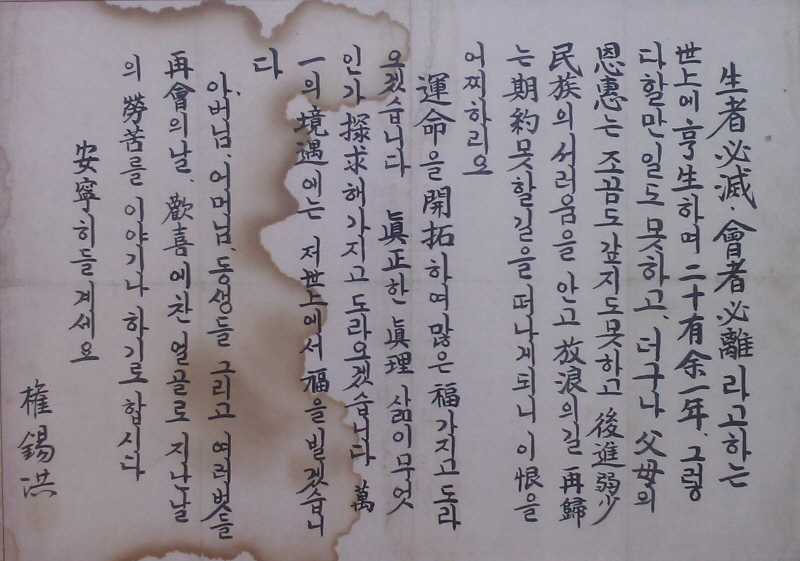 生者必滅·會者必離라고하는
世上에 享生하며 二十有余一年, 그렇
다할만일도 못하고, 더구나 父母의
恩惠는 조끔도 갚지도못하고 後進弱少
民族의 서러움을 안고 放浪의길 再歸
는 期約못할길을 떠나게되니 이 恨을
어찌하리오
運命을 開拓하여 많은 福가지고 도라
오겠습니다 眞正한 眞理 삶이 무엇
인가 探求해가지고 도라오겠습니다 萬
一의 境遇에는 저世上에서 福을 빌겠습니
다
아버님, 어머님, 동생들 그리고 여러벗들
再會의날, 歡喜에찬 얼골로 지나날
의 勞苦를 이야기나 하기로 합시다
安寧히들 계세요
權錫洪